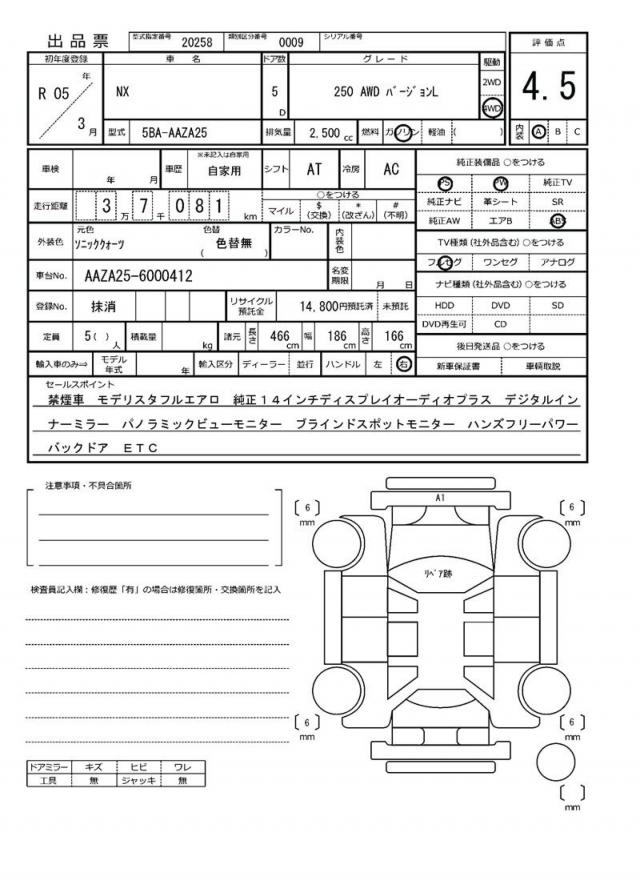 出品票 型式指定番号 20258 類別区分番号 0009 シリアル番号
初年度登録 車名 ドア数 グレード 駆動 評価点
R 05 年 3 月 NX 5 D 250 AWD ﾊﾞｰｼﾞｮﾝL 2WD 4WD 4.5
型式 5BA-AAZA25 排気量 2,500 cc 燃料 ガソリン 軽油 ( ) 内装 A B C
車検 年 月 車歴 ※未記入は自家用 自家用 シフト AT 冷房 AC 純正装備品 ○をつける
PS PW 純正TV
走行距離 3 万 7 千 0 8 1 km ○をつける 純正ナビ 革シート SR
マイル $ (交換) * (改ざん) # (不明) 純正AW エアB ABS
外装色 元色 ｿﾆｯｸｸｫｰﾂ 色替 ( 色替無 ) カラーNo. 内装色 TV種類 (社外品含む) ○をつける
フルセグ ワンセグ アナログ
車台No. AAZA25-6000412 名変期限 月 日 ナビ種類 (社外品含む) ○をつける
登録No. 抹消 リサイクル預託金 14,800円預託済 未預託 HDD DVD SD
DVD再生可 CD
定員 5 ( ) 人 積載量 kg 諸元 長さ 466 cm 幅 186 cm 高さ 166 cm 後日発送品 ○をつける
輸入車のみ⇒ モデル年式 年 輸入区分 ディーラー 並行 ハンドル 左 右 新車保証書 車輌取説
セールスポイント
禁煙車 モデリスタフルエアロ 純正１４インチディスプレイオーディオプラス デジタルイン
ナーミラー パノラミックビューモニター ブラインドスポットモニター ハンズフリーパワー
バックドア ＥＴＣ
注意事項・不具合箇所
検査員記入欄：修復歴「有」の場合は修復箇所・交換箇所を記入
A1
〔 6 〕 mm
〔 6 〕 mm
ﾘﾍﾟｱ跡
〔 6 〕 mm
〔 6 〕 mm
〔 〕 mm
ドアミラー キズ ヒビ ワレ
工具 無 ジャッキ 無